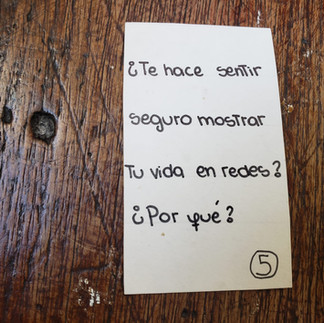 ¿Te hace sentir
seguro mostrar
Tu vida en redes?
¿Por qué?
5